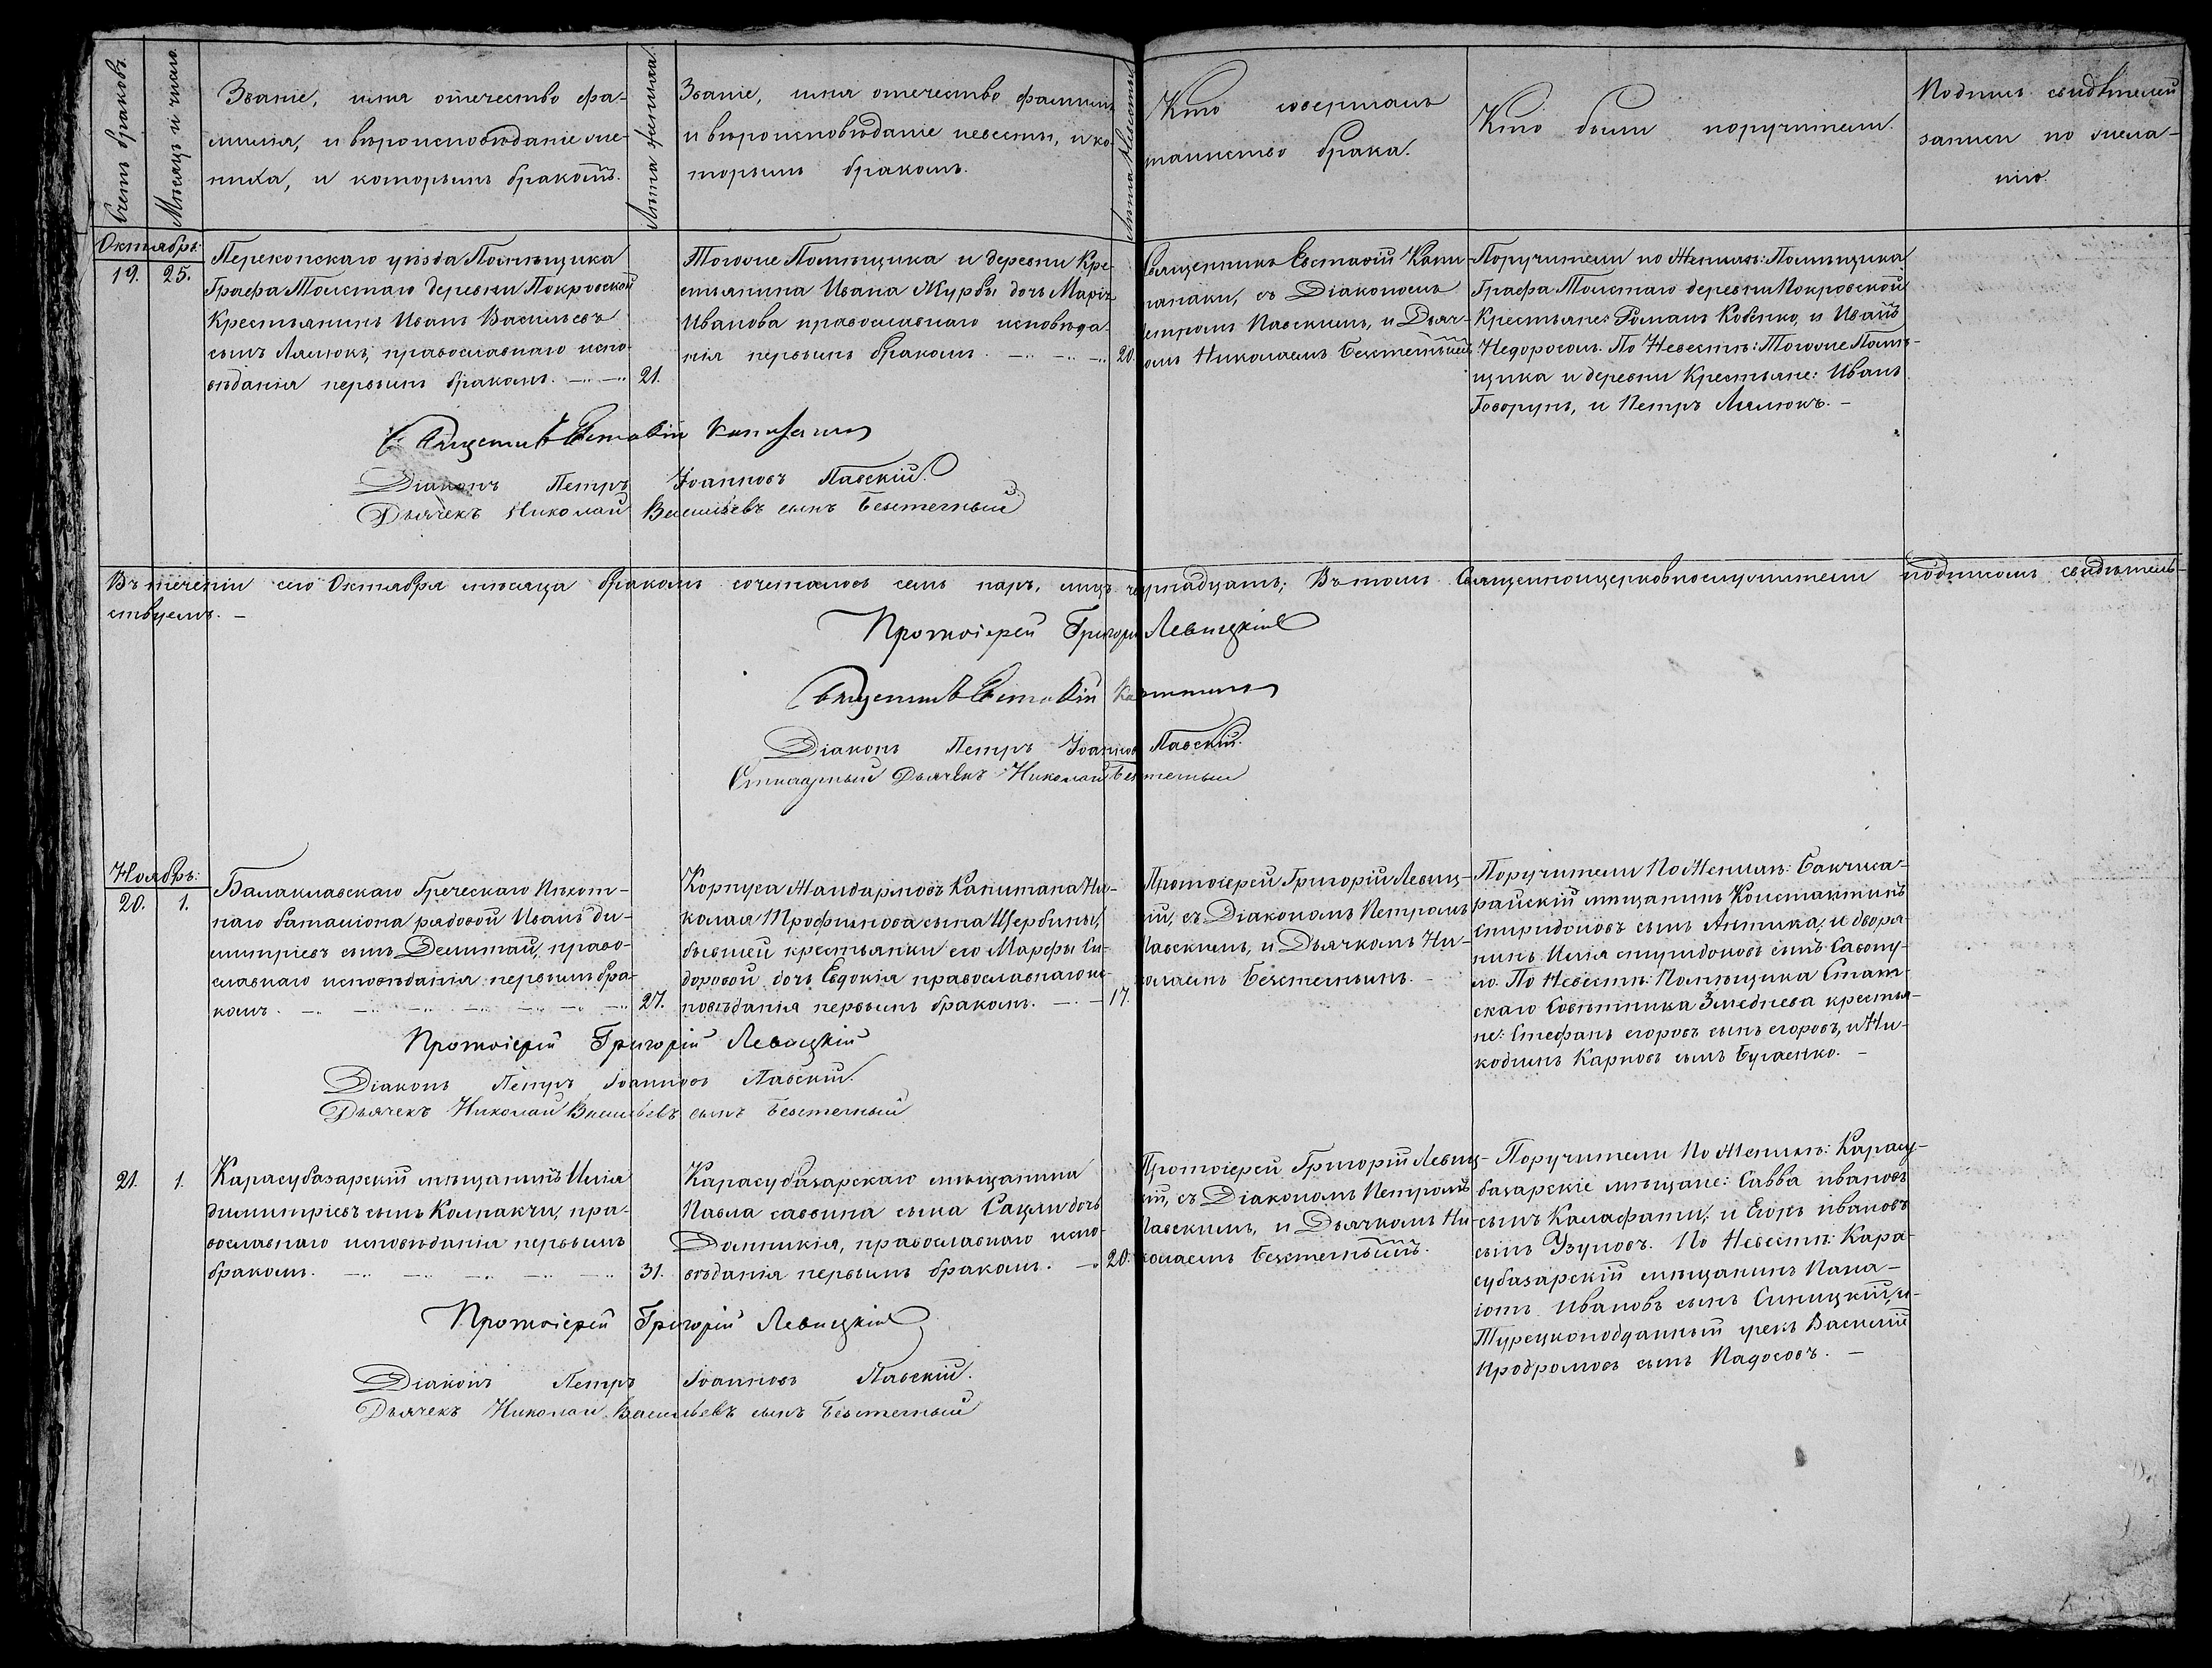 Счетъ браковъ.
Мѣсяцъ и число.
Званіе, имя отечество фа-
милія, и вѣроисповѣданіе же-
ниха, и которымъ бракомъ.
Лѣта жениха.
Званіе, имя отечество фамилія
и вѣроисповѣданіе невесты, и ко-
торымъ бракомъ.
Лѣта невесты
Кто совершалъ
таинство брака.
Кто были поручители.
Подпись свидѣтелей
записи по жела-
нію.
Октябрь:
19. 25.
Перекопскаго уѣзда Помѣщика
Графа Толстаго деревни Покровской
Крестьянинъ Иванъ Васильевъ
сынъ Лялюкъ, православнаго испо-
вѣданія первымъ бракомъ.
21.
Тогоже Помѣщика и деревни Кре-
стьянина Ивана Журбы дочь Марія
Иванова православнаго исповѣда-
нія первымъ бракомъ.
20.
Священникъ Евстафій Капи-
танаки, съ Діакономъ
Петромъ Павскимъ, и Дьяч-
омъ Николаемъ Безстетнымъ
Поручители по Женихѣ: Помѣщика
Графа Толстаго деревни Покровской
Крестьяне: Романъ Ковенко, и Иванъ
Недорогой. По Невестѣ: Тогоже Помѣ-
щика и деревни Крестьяне: Иванъ
Говорунъ, и Петръ Лялюкъ. –
Священникъ Евстафій
Діаконъ Петръ Іоанновъ Павскій.
Дьячекъ Николай Васильевъ сынъ Безстетный
Въ теченіи сего Октября мѣсяца бракомъ сочеталось семь паръ, лицъ четырнадцать; Въ томъ Священноцерковнослужители подписомъ свидѣтель-
ствуемъ. –
Протоіерей Григорій Левицкій
Священникъ Евстафій
Діаконъ Петръ Іоанновъ Павскій.
Дьячекъ Николай Безстетный
Ноябрь:
20. 1.
Балаклавскаго Греческаго Пѣхот-
наго баталіона рядовой Иванъ ди-
митріевъ сынъ Делитай, право-
славнаго исповѣданія первымъ бра-
комъ.
27.
Корпуса Жандармовъ Капитана Ни-
колая Трофимова сына Щербины,
бывшей крестьянки его Марфы Си-
доровой дочь Евдокія православнаго ис-
повѣданія первымъ бракомъ.
17.
Протоіерей Григорій Левиц-
ій, съ Діакономъ Петромъ
Павскимъ, и Дьячкомъ Ни-
колаемъ Безстетнымъ. –
Поручители По Женихѣ: Бакчиса-
райскій мѣщанинъ Константинъ
спиридоновъ сынъ Антика, и дворя-
нинъ Илія спиридоновъ сынъ Савопу-
ло. По Невестѣ: Помѣщика Стат-
скаго Совѣтника Змеднева крестья-
не: Стефанъ егоровъ сынъ егоровъ, и Ни-
кодимъ Карповъ сынъ Бугаенко. –
Протоіерей Григорій Левицкій
Діаконъ Петръ Іоанновъ Павскій.
Дьячекъ Николай Васильевъ сынъ Безстетный
21. 1.
Карасубазарскій мѣщанинъ Илія
димитріевъ сынъ Колпакчи, пра-
вославнаго исповѣданія первымъ
бракомъ.
31.
Карасубазарскаго мѣщанина
Павла саввина сына Сацли дочь
Домникія, православнаго испо-
вѣданія первымъ бракомъ.
20.
Протоіерей Григорій Левиц-
кій, съ Діакономъ Петромъ
Павскимъ, и Дьячкомъ Ни-
колаемъ Безстетнымъ.
Поручители По Женихѣ: Карасу-
базарскіе мѣщане: Савва ивановъ
сынъ Калафати, и Егоръ ивановъ
сынъ Узуновъ. По Невестѣ: Кара-
субазарскій мѣщанинъ Пана-
іотъ Ивановъ сынъ Синицкій, и
Турецкоподданный грекъ Василій
Продромовъ сынъ Падосовъ. –
Протоіерей Григорій Левицкій
Діаконъ Петръ Іоанновъ Павскій.
Дьячекъ Николай Васильевъ сынъ Безстетный